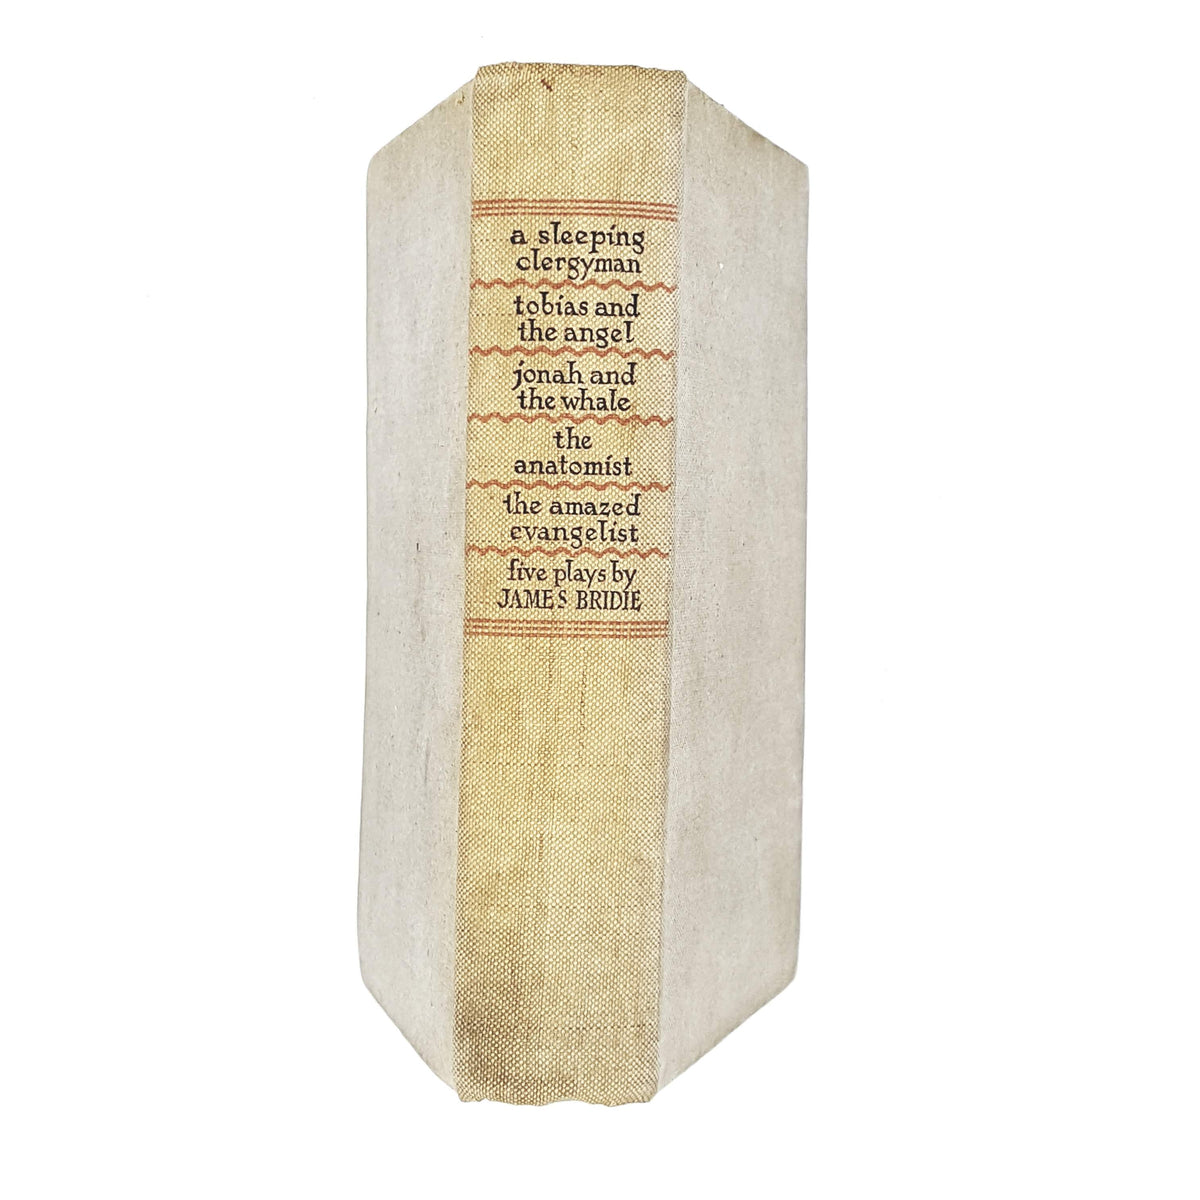 a sleeping
clergyman
tobias and
the angel
jonah and
the whale
the
anatomist
the amazed
evangelist
five plays by
JAMES BRIDIE